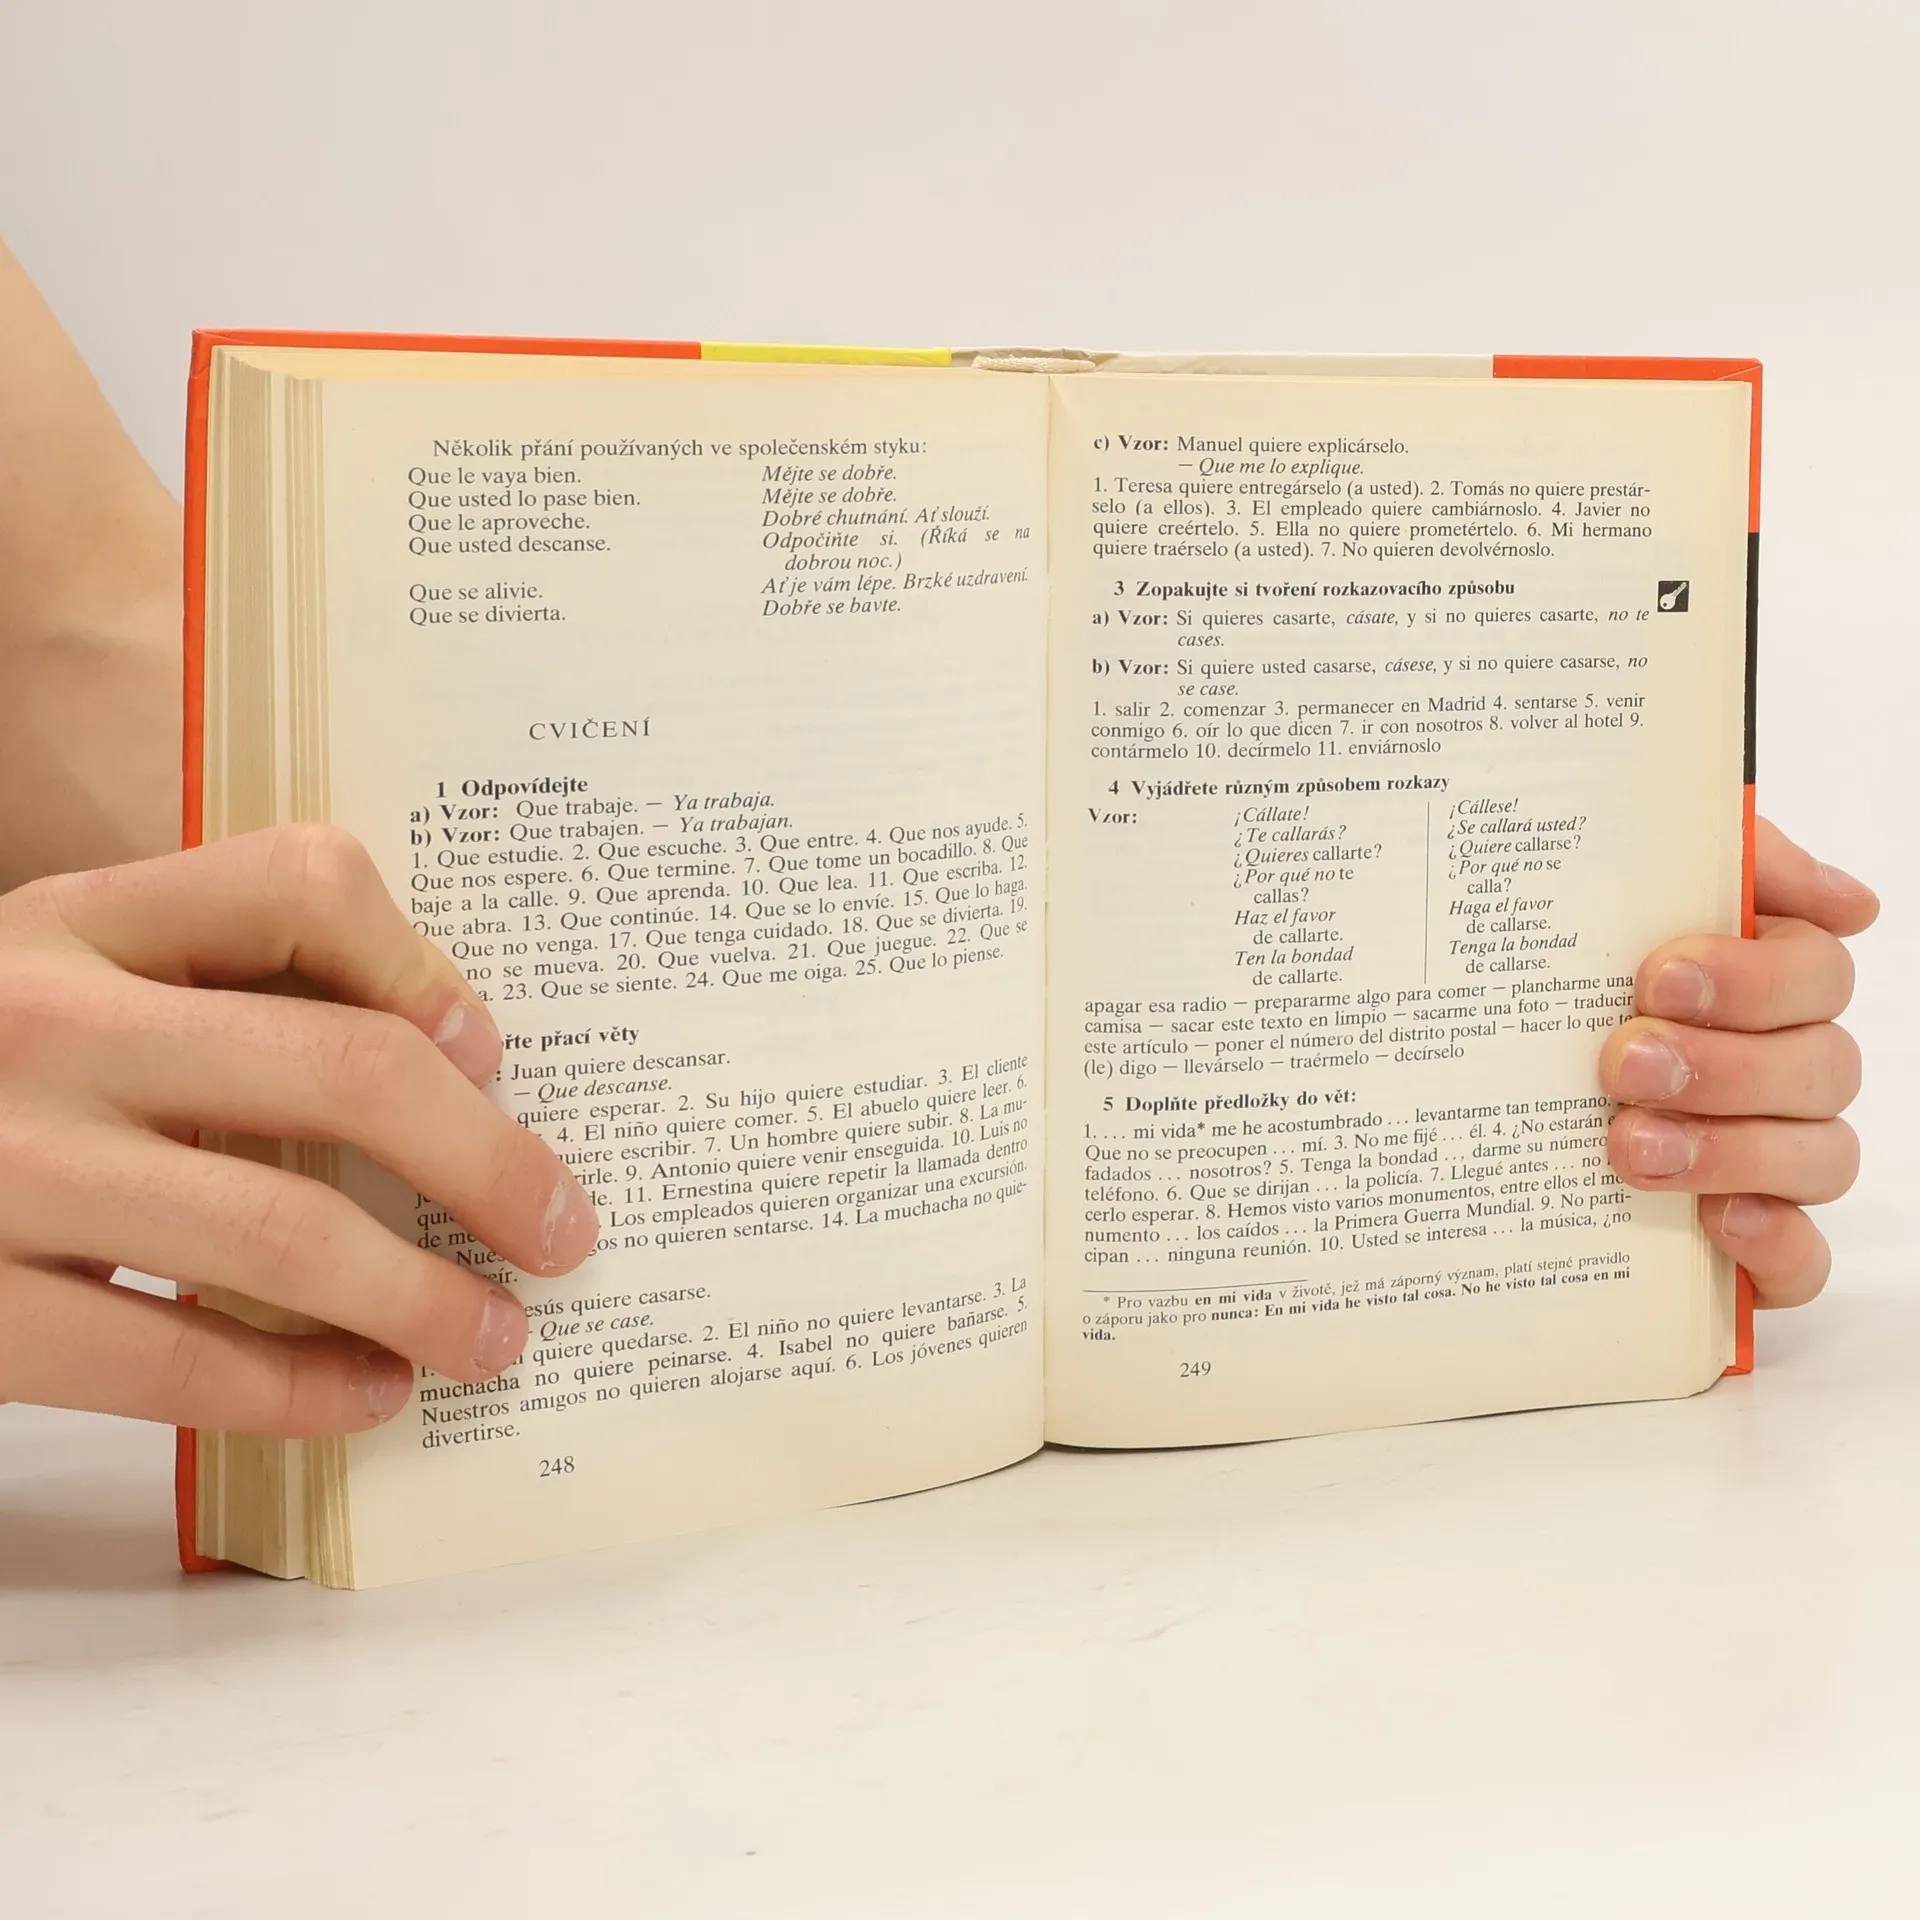 Několik přání používaných ve společenském styku:
Que le vaya bien. Mějte se dobře.
Que usted lo pase bien. Mějte se dobře.
Que le aproveche. Dobré chutnání. Ať slouží.
Que usted descanse. Odpočiňte si. (Říká se na
dobrou noc.)
Que se alivie. Ať je vám lépe. Brzké uzdravení.
Que se divierta. Dobře se bavte.
CVIČENÍ
1 Odpovídejte
a) Vzor: Que trabaje. — Ya trabaja.
b) Vzor: Que trabajen. — Ya trabajan.
1. Que estudie. 2. Que escuche. 3. Que entre. 4. Que nos ayude. 5.
Que nos espere. 6. Que termine. 7. Que tome un bocadillo. 8. Que
baje a la calle. 9. Que aprenda. 10. Que lea. 11. Que escriba. 12.
Que abra. 13. Que continúe. 14. Que se lo envíe. 15. Que lo haga.
Que no venga. 17. Que tenga cuidado. 18. Que se divierta. 19.
no se mueva. 20. Que vuelva. 21. Que juegue. 22. Que se
a. 23. Que se siente. 24. Que me oiga. 25. Que lo piense.
přací věty
: Juan quiere descansar.
— Que descanse.
quiere esperar. 2. Su hijo quiere estudiar. 3. El cliente
4. El niño quiere comer. 5. El abuelo quiere leer. 6.
quiere escribir. 7. Un hombre quiere subir. 8. La mu-
9. Antonio quiere venir enseguida. 10. Luis no
11. Ernestina quiere repetir la llamada dentro
Los empleados quieren organizar una excursión.
de no quieren sentarse. 14. La muchacha no quie-
quiere casarse.
— Que se case.
1. quiere quedarse. 2. El niño no quiere levantarse. 3. La
muchacha no quiere peinarse. 4. Isabel no quiere bañarse. 5.
Nuestros amigos no quieren alojarse aquí. 6. Los jóvenes quieren
divertirse.
248
c) Vzor: Manuel quiere explicárselo.
— Que me lo explique.
1. Teresa quiere entregárselo (a usted). 2. Tomás no quiere prestár-
selo (a ellos). 3. El empleado quiere cambiárnoslo. 4. Javier no
quiere creértelo. 5. Ella no quiere prometértelo. 6. Mi hermano
quiere traérselo (a usted). 7. No quieren devolvérnoslo.
3 Zopakujte si tvoření rozkazovacího způsobu
a) Vzor: Si quieres casarte, cásate, y si no quieres casarte, no te
cases.
b) Vzor: Si quiere usted casarse, cásese, y si no quiere casarse, no
se case.
1. salir 2. comenzar 3. permanecer en Madrid 4. sentarse 5. venir
conmigo 6. oír lo que dicen 7. ir con nosotros 8. volver al hotel 9.
contármelo 10. decírmelo 11. enviárnoslo
4 Vyjádřete různým způsobem rozkazy
Vzor: ¡Cállate! ¡Cállese!
¿Te callarás? ¿Se callará usted?
¿Quieres callarte? ¿Quiere callarse?
¿Por qué no te ¿Por qué no se
callas? calla?
Haz el favor Haga el favor
de callarte. de callarse.
Ten la bondad Tenga la bondad
de callarte. de callarse.
apagar esa radio — prepararme algo para comer — plancharme una
camisa — sacar este texto en limpio — sacarme una foto — traducir
este artículo — poner el número del distrito postal — hacer lo que te
(le) digo — llevárselo — traérmelo — decírselo
5 Doplňte předložky do vět:
1. ... mi vida* me he acostumbrado ... levantarme tan temprano.
Que no se preocupen ... mí. 3. No me fijé ... él. 4. ¿No estarán
fadados ... nosotros? 5. Tenga la bondad ... darme su número
teléfono. 6. Que se dirijan ... la policía. 7. Llegué antes ... no
cerlo esperar. 8. Hemos visto varios monumentos, entre ellos el mo
numento ... los caídos ... la Primera Guerra Mundial. 9. No parti-
cipan ... ninguna reunión. 10. Usted se interesa ... la música, ¿no
* Pro vazbu en mi vida v životě, jež má záporný význam, platí stejné pravidlo
o záporu jako pro nunca: En mi vida he visto tal cosa. No he visto tal cosa en mi
vida.
249